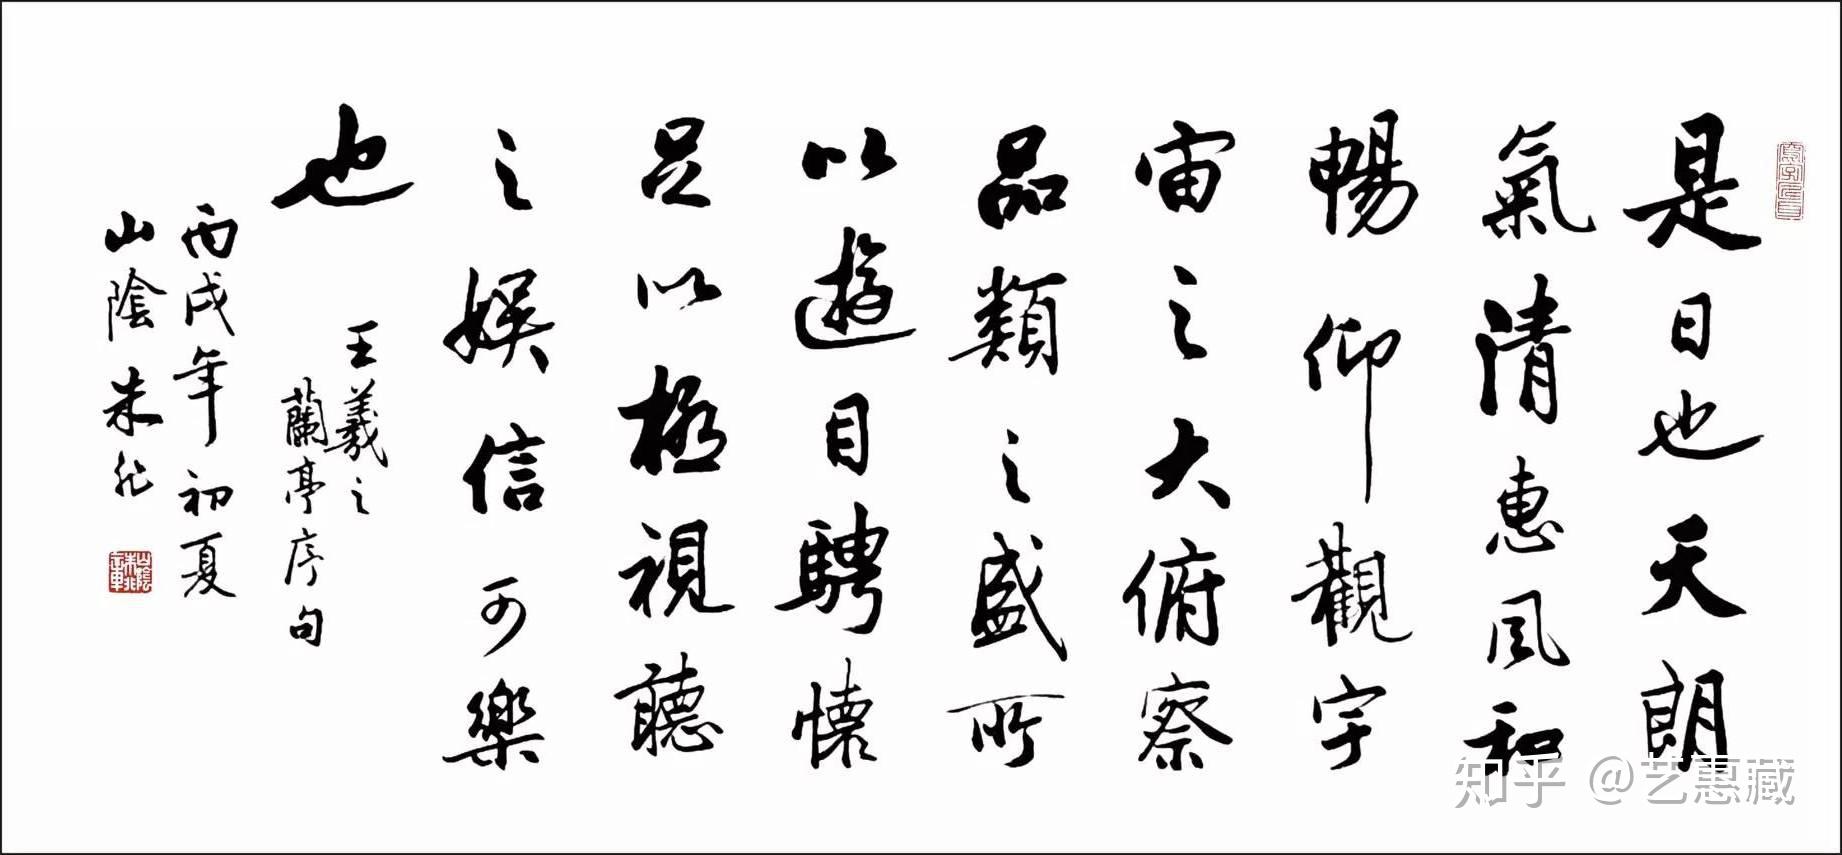 是日也天朗
氣清惠風和
暢仰觀宇
宙之大俯察
品類之盛所
以遊目騁懷
足以極視聽
之娛信可樂
也
王羲之
蘭亭序句
丙戌年初夏
山陰朱
知乎 @艺惠藏